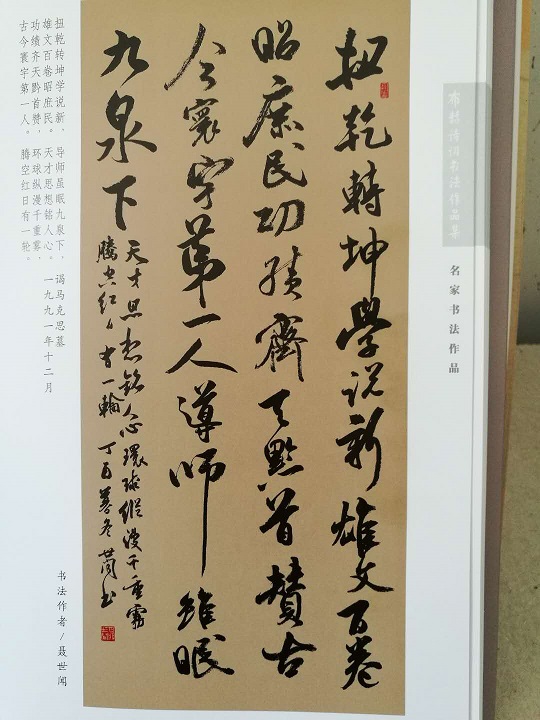 布赫诗词书法作品集
名家书法作品
扭乾轉坤學説新雄文百卷
昭庶民功绩齊天黔首贊古
今寰宇第一人導師雖眠
九泉下
天才思想銘人心環球縱漫千重霧
騰空紅日有一輪 丁酉暮冬 世闻书
扭乾转坤学说新，导师虽眠九泉下，
雄文百卷昭庶民。天才思想铭人心。
功绩齐天黔首赞，环球纵漫千重雾，
古今寰宇第一人。腾空红日有一轮。
谒马克思墓
一九九一年十二月
书法作者/聂世闻